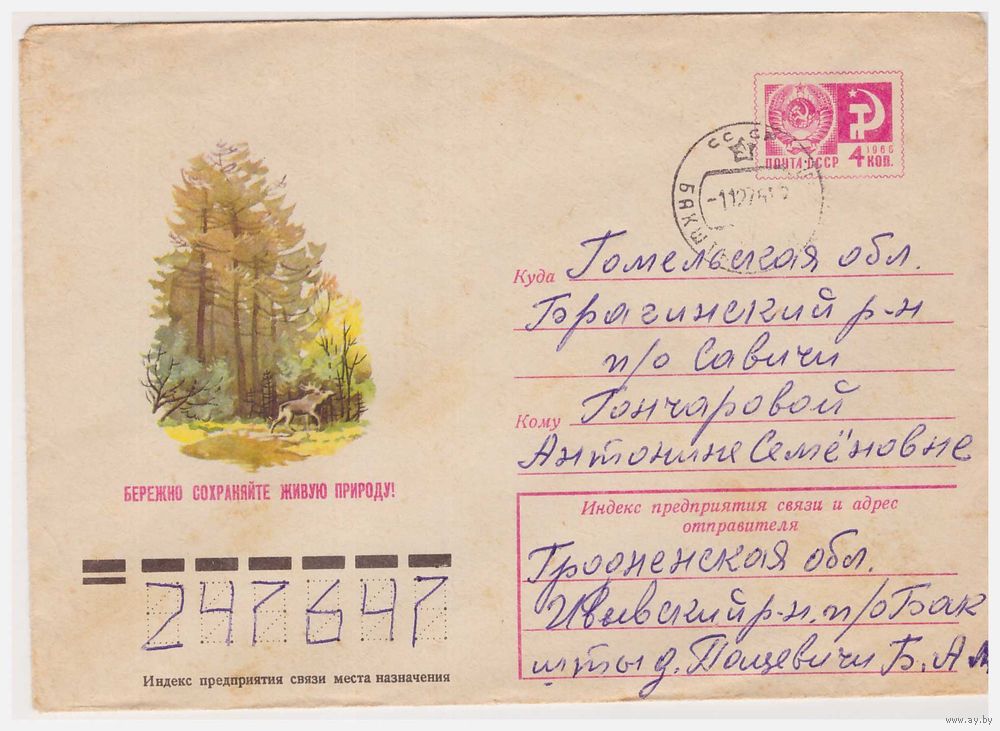 ПОЧТА СССР
1966
4 КОП.
Куда Гомельская обл.
Брагинский р-н
п/о Савичи
Кому Гончаровой
Антонине Семёновне
БЕРЕЖНО СОХРАНЯЙТЕ ЖИВУЮ ПРИРОДУ!
Индекс предприятия связи и адрес
отправителя
Гродненская обл.
Ивьевский р-н. п/о Бак
шты д. Пацевичи Б. А М
247647
Индекс предприятия связи места назначения
www.ay.by